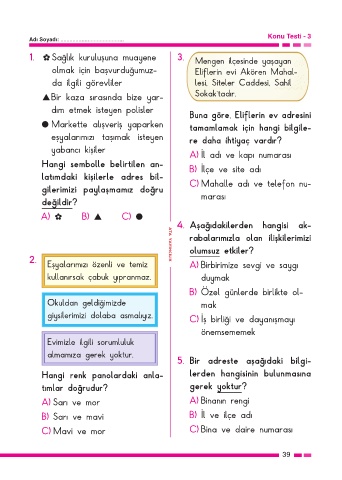 Adı Soyadı: ..............................
Konu Testi - 3
1. ✿ Sağlık kuruluşuna muayene
olmak için başvurduğumuz-
da ilgili görevliler
▲ Bir kaza sırasında bize yar-
dım etmek isteyen polisler
● Markette alışveriş yaparken
eşyalarımızı taşımak isteyen
yabancı kişiler
Hangi sembolle belirtilen an-
latımdaki kişilerle adres bil-
gilerimizi paylaşmamız doğru
değildir?
A) ✿ B) ▲ C) ●
2. Eşyalarımızı özenli ve temiz
kullanırsak çabuk yıpranmaz.
Okuldan geldiğimizde
giysilerimizi dolaba asmalıyız.
Evimizle ilgili sorumluluk
almamıza gerek yoktur.
Hangi renk panolardaki anla-
tımlar doğrudur?
A) Sarı ve mor
B) Sarı ve mavi
C) Mavi ve mor
3. Mengen ilçesinde yaşayan
Elif'lerin evi Akören Mahal-
lesi, Siteler Caddesi, Sahil
Sokak'tadır.
Buna göre, Elif'lerin ev adresini
tamamlamak için hangi bilgile-
re daha ihtiyaç vardır?
A) İl adı ve kapı numarası
B) İlçe ve site adı
C) Mahalle adı ve telefon nu-
marası
4. Aşağıdakilerden hangisi ak-
rabalarımızla olan ilişkilerimizi
olumsuz etkiler?
A) Birbirimize sevgi ve saygı
duymak
B) Özel günlerde birlikte ol-
mak
C) İş birliği ve dayanışmayı
önemsememek
5. Bir adreste aşağıdaki bilgi-
lerden hangisinin bulunmasına
gerek yoktur?
A) Binanın rengi
B) İl ve ilçe adı
C) Bina ve daire numarası
39